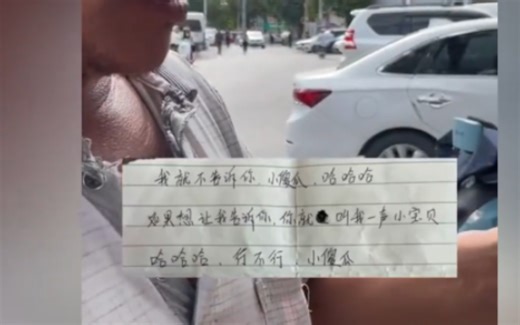 我就不告诉你，小傻瓜，哈哈哈
如果想让我告诉你，你就叫我一声小宝贝
哈哈哈，行不行，小傻瓜